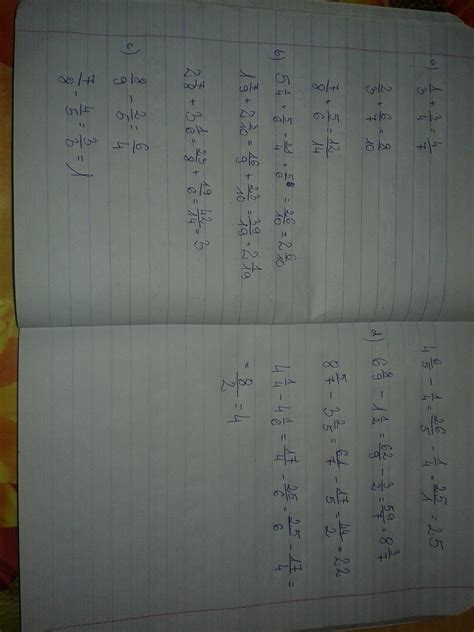 a) 1/3 + 3/4 = 4/7
2/3 + 6/7 = 8/10
7/8 + 5/6 = 12/14
b) 5 1/4 + 5/6 = 21/4 + 5/6 = 26/10 = 2 6/10
1 7/9 + 2 3/10 = 16/9 + 23/10 = 39/19 = 2 1/19
2 7/8 + 3 1/6 = 23/8 + 19/6 = 42/14 = 3
c) 8/9 - 2/5 = 6/4
7/8 - 4/5 = 3/3 = 1
4 6/5 - 1/4 = 26/5 - 1/4 = 25/1 = 25
d) 6 8/9 - 1 1/2 = 62/9 - 3/2 = 59/7 = 8 3/7
8 5/7 - 3 2/5 = 61/7 - 17/5 = 44/2 = 22
4 1/4 - 4 1/6 = 17/4 - 25/6 = 25/6 - 17/4 =
= 8/2 = 4